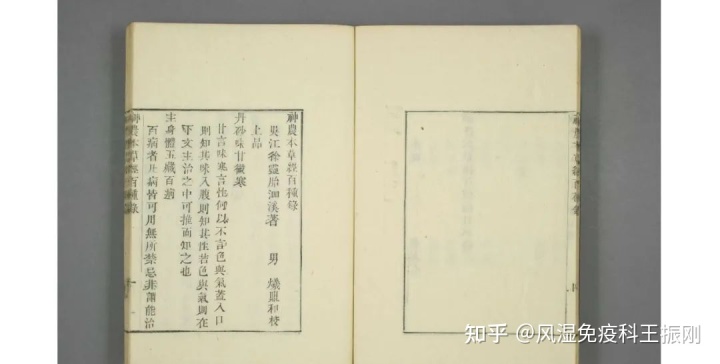 神農本草經百種錄
吳江徐靈胎洄溪著 男 爔鼎和校
上品
丹砂味甘微寒
甘言味寒言性何以不言色與氣蓋入口
則知其味入腹則知其性若色與氣則在
下文主治之中可推而知之也
主身體五藏百病
百病者凡病皆可用無所禁忌非謂能治
神農本草經百種錄
知乎 @风湿免疫科王振刚